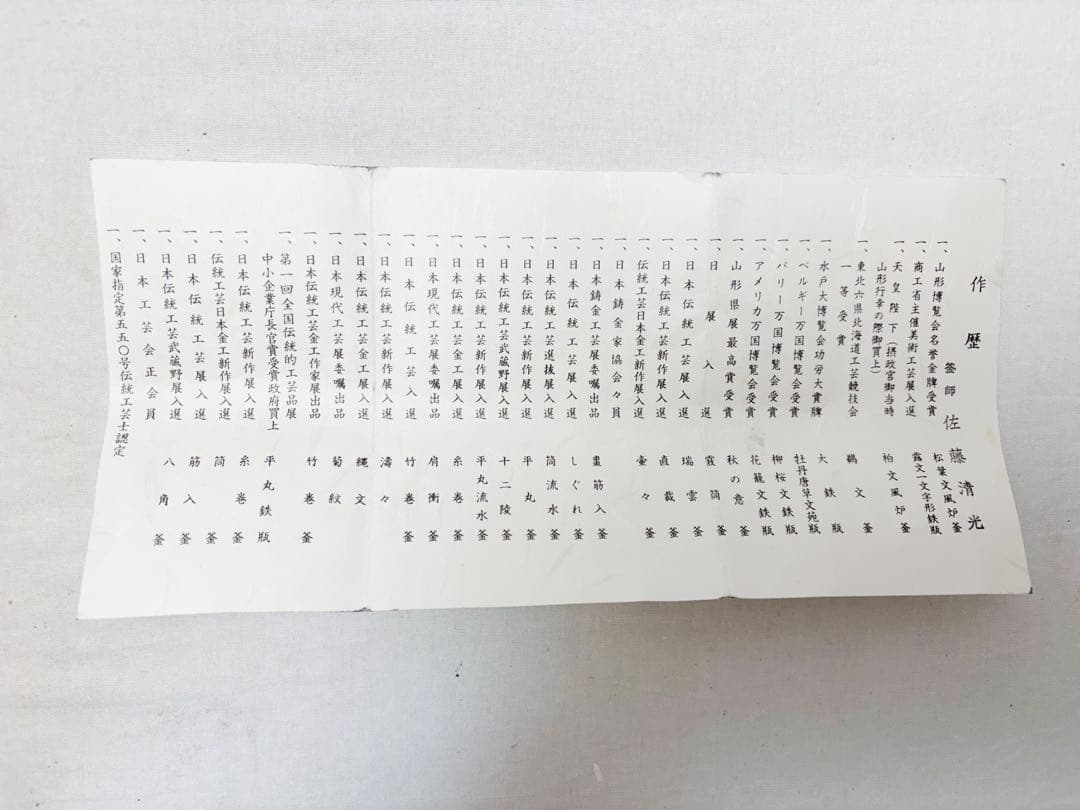 作歴
釜師 佐藤清光
一、山形博覧会名誉金牌受賞 松葉文風炉釜
一、商工省主催美術工芸展入選 露文一文字形鉄瓶
一、天皇陛下(摂政宮御当時
山形行幸の際御買上) 柏文風炉釜
一、東北六県北海道工芸競技会
一等受賞 鶴文釜
一、水戸大博覧会功労大賞牌 大鉄瓶
一、ベルギー万国博覧会受賞 牡丹唐草文苑瓶
一、パリー万国博覧会受賞 柳桜文鉄瓶
一、アメリカ万国博覧会受賞 花籠文鉄瓶
一、山形県展最高賞受賞 秋の意釜
一、日展入選 霰筒釜
一、日本伝統工芸展入選 瑞雲釜
一、日本伝統工芸展入選 直裁釜
一、伝統工芸日本金工新作展入選 壷々釜
一、日本鋳金家協会々員
一、日本鋳金工芸展委嘱出品 畳筋入釜
一、日本伝統工芸展入選 しぐれ釜
一、日本伝統工芸選抜展入選 筒流水釜
一、日本伝統工芸新作展入選 平丸釜
一、日本伝統工芸武蔵野展入選 十二陵釜
一、日本伝統工芸新作展入選 平丸流水釜
一、日本伝統工芸展入選 糸巻釜
一、日本現代工芸展委嘱出品 肩衝釜
一、日本伝統工芸入選 竹巻釜
一、日本伝統工芸新作展入選 濤々
一、日本伝統工芸金工展入選 縄文
一、日本現代工芸展委嘱出品 菊紋
一、日本伝統工芸金工作家展出品 竹巻釜
一、第一回全国伝統的工芸品展
中小企業庁長官賞受賞政府買上 平丸鉄瓶
一、日本伝統工芸新作展入選 糸巻釜
一、伝統工芸日本金工新作展入選 筒釜
一、日本伝統工芸展入選 筋入釜
一、日本伝統工芸武蔵野展入選 八角釜
一、日本工芸会正会員
一、国家指定第五五〇号伝統工芸士認定